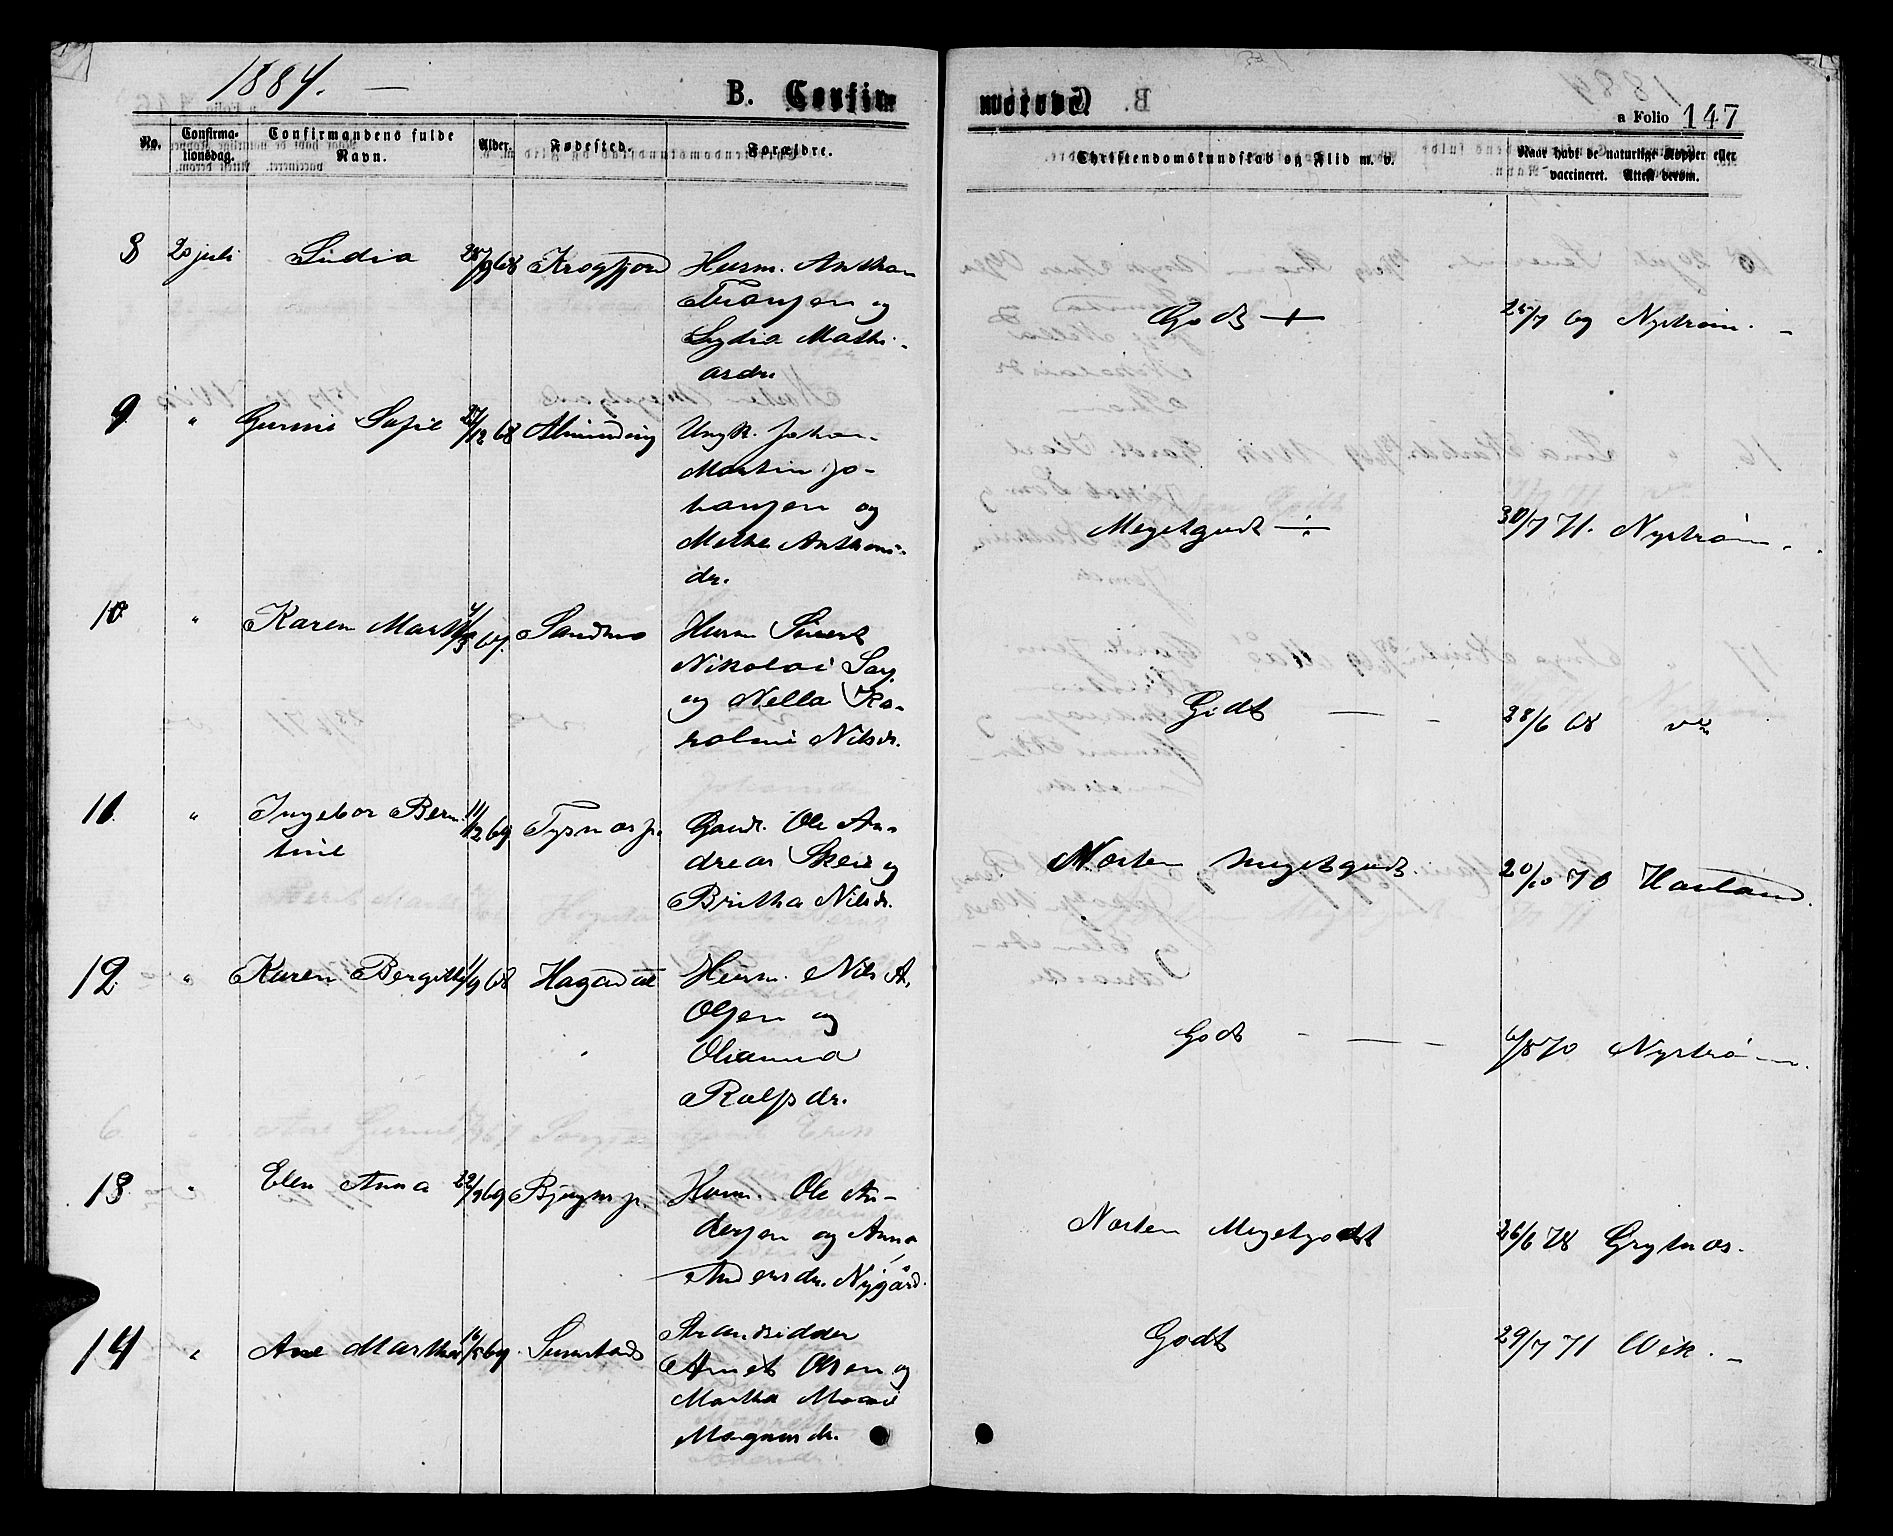 1884. —
B. Confir
merede.
a Folio 147
No.
Confirma-
tionsdag.
Confirmandens fulde
Navn.
Alder.
Fødested.
Forældre.
Christendomskundskab og Flid m. v.
Naar havt de naturlige Kopper eller
vaccineret. Attest derom.
8 20 juli Lidia 28/9 68 Krogfjord Husm. Anthon
Fransen og
Lydia Mathi-
asdr.
Godt +
25/7 69 Nystrøm. -
9 " Gurine Sofie 27/12 68 Alminding Ungk. Johan
Martin Jo-
hansen og
Methe Anthoni-
dr.
Megetgodt
30/7 71. Nystrøm.
10 " Karen Martha 4/3 67. Sandmo Husm Sivert
Nikolai
og Nella Ka-
roline Nilsdr.
Godt — -
28/6 68
11 " Ingebor Bern-
tine 11/12 69 Tysnæs p. Gaardr. Ole An-
dreas Skeie og
Britha Nilsdr.
Næsten megetgodt.
20/10 70 Havland.
12 " Karen Bergitte 1/9 68 Hagadal Husm. Nils A.
Olsen og
Olianna
Rolfsdr.
Godt - — -
6/8 70 Nystrøm.
13 " Elen Anna 22/9 69 Bjugns p. Husm. Ole An-
dersen og Anna
Andersdr. Nygård.
Næsten Megetgodt
26/6 78 Grytnæs.
14 " Ane Martha 16/5 69. Strandsidder
Arnet Olsen og
Martha Marie
Magnusdr.
Godt
29/7 71 Wik. -